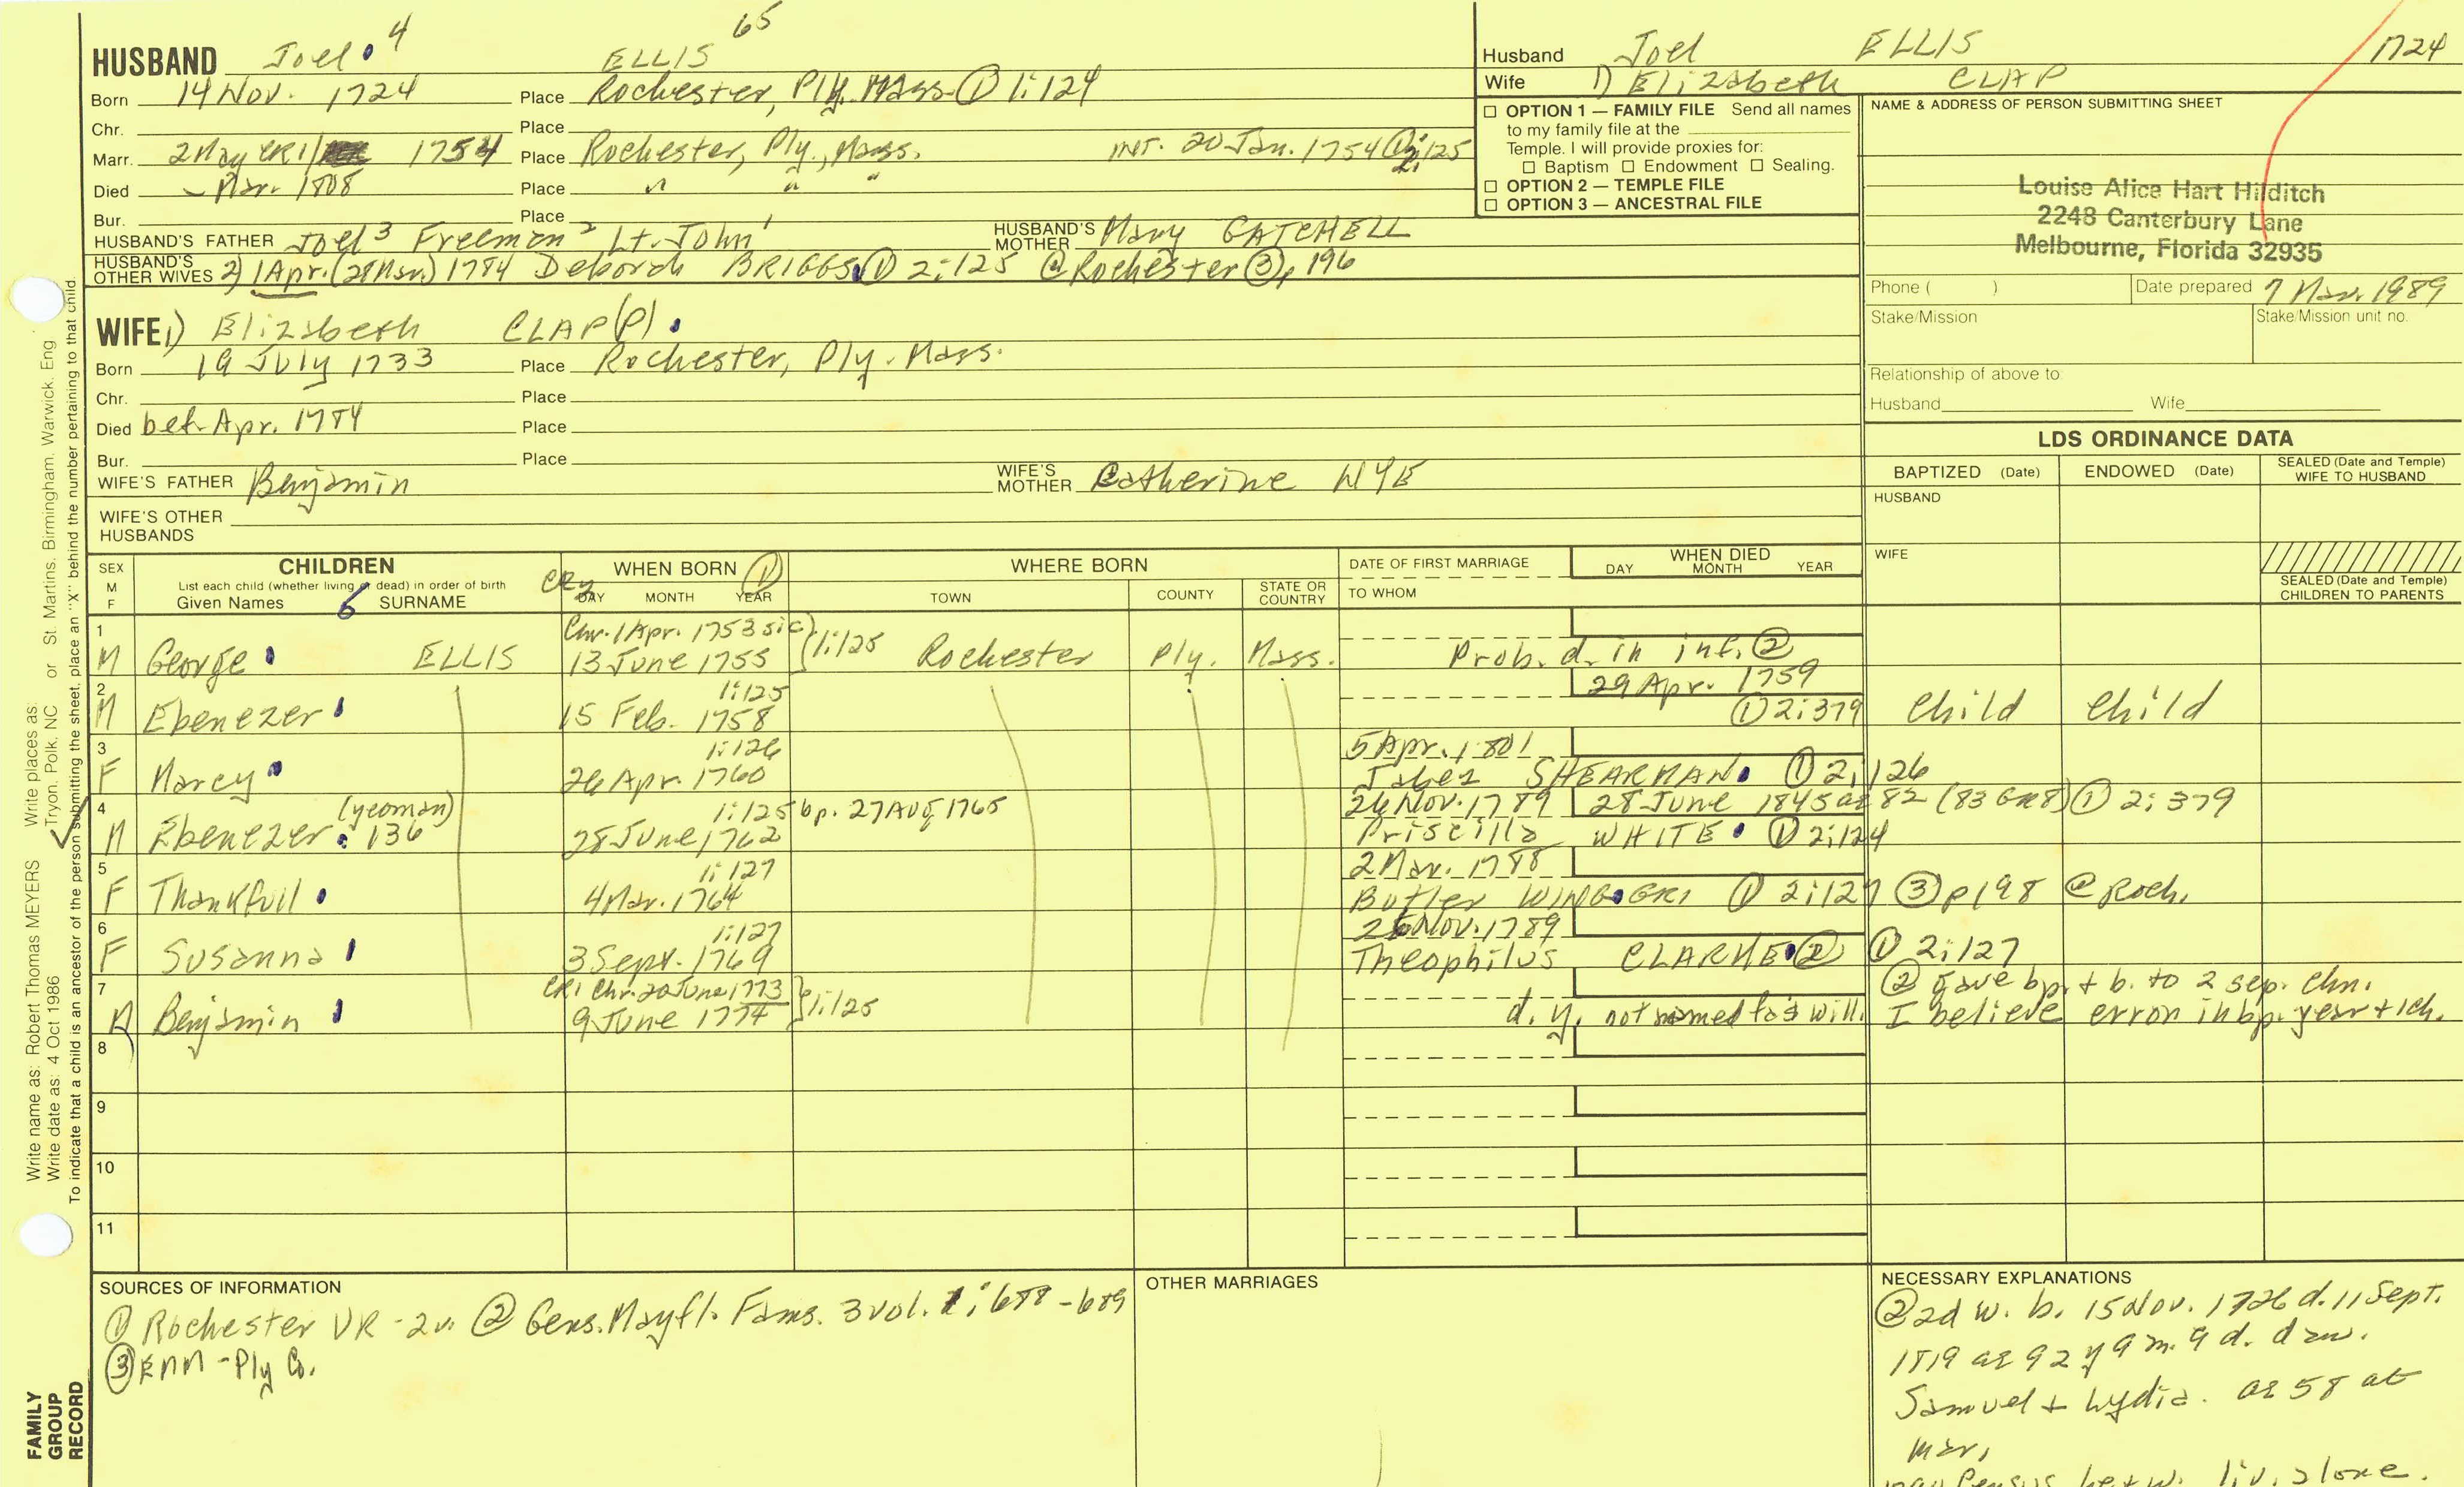 HUSBAND Joel 4 ELLIS 65
Born 14 Nov. 1724 Place Rochester, Ply. Mass. ① 1:124
Chr. Place
Marr. 2 May CR1/ 1754 Place Rochester, Ply., Mass. INT. 20 Jan. 1754 ① 2:125
Died – Mar. 1808 Place " " "
Bur. Place
HUSBAND'S FATHER Joel 3 Freeman 2 Lt. John 1 HUSBAND'S MOTHER Mary GATCHELL
HUSBAND'S OTHER WIVES 2) 1 Apr. (28 Mar.) 1784 Deborah BRIGGS ① 2:125 @ Rochester ③ p 196
Husband Joel ELLIS 1724
Wife 1) Elizabeth CLAP
☐ OPTION 1 — FAMILY FILE Send all names
to my family file at the
Temple. I will provide proxies for:
☐ Baptism ☐ Endowment ☐ Sealing.
☐ OPTION 2 — TEMPLE FILE
☐ OPTION 3 — ANCESTRAL FILE
NAME & ADDRESS OF PERSON SUBMITTING SHEET
Louise Alice Hart Hilditch
2248 Canterbury Lane
Melbourne, Florida 32935
Phone ( ) Date prepared 7 Mar. 1989
Stake/Mission Stake/Mission unit no.
Relationship of above to:
Husband Wife
WIFE 1) Elizabeth CLAP(P)
Born 19 July 1733 Place Rochester, Ply. Mass.
Chr. Place
Died bef. Apr. 1784 Place
Bur. Place
WIFE'S FATHER Benjamin WIFE'S MOTHER Catherine NYE
WIFE'S OTHER HUSBANDS
LDS ORDINANCE DATA
BAPTIZED (Date) ENDOWED (Date) SEALED (Date and Temple) WIFE TO HUSBAND
HUSBAND
WIFE
SEALED (Date and Temple) CHILDREN TO PARENTS
SEX M F CHILDREN
List each child (whether living or dead) in order of birth
Given Names 6 SURNAME
WHEN BORN ①
DAY MONTH YEAR
WHERE BORN
TOWN COUNTY STATE OR COUNTRY
DATE OF FIRST MARRIAGE
TO WHOM
WHEN DIED
DAY MONTH YEAR
1 M George ELLIS Chr. 1 Apr. 1753 sic) 13 June 1755 } 1:125 Rochester Ply. Mass. Prob. d. in inf. ②
2 M Ebenezer 1:125 15 Feb. 1758 29 Apr. 1759 ① 2:379 Child Child
3 F Marcy 1:126 26 Apr. 1760 5 Apr. 1801 Jabez SHEARMAN ① 2:126
4 M Ebenezer 136 (yeoman) 1:125 bp. 27 Aug 1765 28 June 1762 26 Nov. 1789 28 June 1845 ae 82 (83 GR8) ① 2:379
Priscilla WHITE ① 2:124
5 F Thankfull 1:127 4 Mar. 1764 2 Mar. 1788 Butler WING GR1 ① 2:127 ③ p 198 @ Roch.
6 F Susanna 1:127 3 Sept. 1769 26 Nov. 1789 Theophilus CLARKE ② ① 2:127
7 M Benjamin CR1 Chr. 20 June 1773 9 June 1774 } 1:125 d. y. not named fa's will. ② gave bp. + b. to 2 sep. chn.
I believe error in bp. year + 1 ch.
8
9
10
11
SOURCES OF INFORMATION
① Rochester VR - 2v. ② Gens. Mayfl. Fams. 3 vol. 1:688-689
③ EMM - Ply Co.
OTHER MARRIAGES
NECESSARY EXPLANATIONS
② 2d w. b. 15 Nov. 1726 d. 11 Sept.
1819 ae 92 y 9 m. 9 d. dau.
Samuel + Lydia. ae 58 at
mar.
Census he + w. liv. alone.
Write name as: Robert Thomas MEYERS Write places as:
Write date as: 4 Oct 1986 Tryon, Polk, NC or St. Martins, Birmingham, Warwick, Eng
To indicate that a child is an ancestor of the person submitting the sheet, place an "X" behind the number pertaining to that child.
FAMILY GROUP RECORD